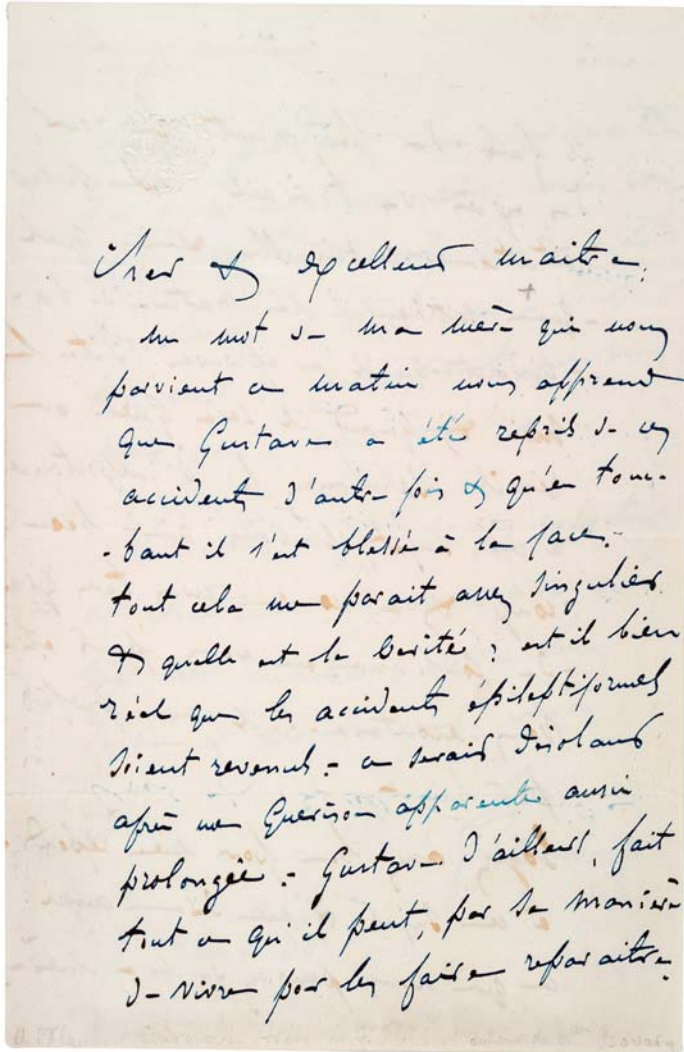 Cher & excellent maitre,
un mot de ma mère qui nous
parvient ce matin nous apprend
que Gustave a été repris de ces
accidents d'autre fois & qu'en tom-
-bant il s'est blessé à la face. -
tout cela me parait assez singulier
& quelle est la vérité ; est il bien
réel que les accidents épileptiformes
soient revenus. - ce serait désolant
après une Guérison apparente aussi
prolongée. - Gustave d'ailleurs, fait
tout ce qu'il peut, par sa manière
de vivre pour les faire reparaitre.